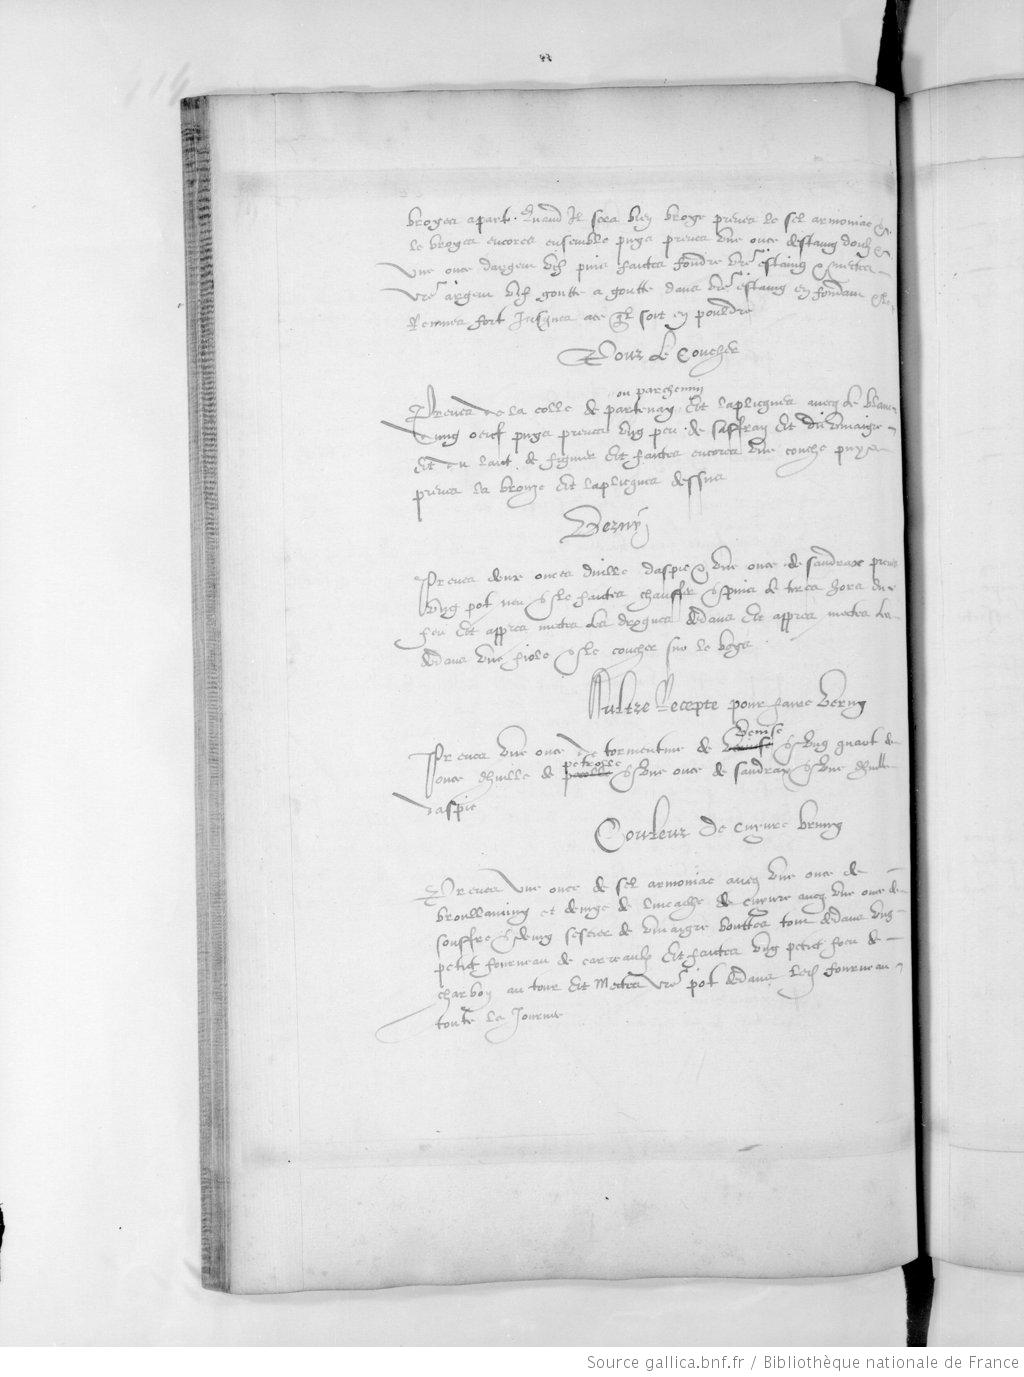 broyes apart. Quand Il sera bien broye prenes le sel armoniac &
le broyes encores ensemble puys prenes une once destaing doulz &
une once dargem vif puis faictes fondre vre estaing & mectes
vre argem vif goutte a goutte dans vre estaing en fondam & le
Remues fort Jusques ace quil soit en pouldre
Pour le Coucher
ou parchemin
Prenes de la colle de partenay et laplicques avecq le blanc
dung oeuf puys prenes ung peu de saffran et du vinaigre
et du laict de figuier et faictes encores une couche puys
prenes la bronze et laplicques dessus
Verny
Prenes deux onces duille daspic & une once de sandrax prenes
ung pot neu & le faictes chauffer & puis le tires hors du
feu et appres mectes les drogues dedans et appres mectes les
dedans une fiole & le coucher sur le boys
Aultre Recepte pour faire verny
Prenes une once de tormentine de venise & ung quart de
once dhuille de petrolle & une once de sandrax & une dhuille
daspic
Couleur de cuyvre brung
Prenes une once de sel armoniac avecq une once de
broullaming et demye de limache de cuyvre avecq une once de
souffre & demy sestier de vinaigre bouttes tout dedans ung
petit fourneau de carreaulx et faictes ung petit foeu de
charbon au tour et mectes vre pot dedans led fourneau
toute la Journee
Source gallica.bnf.fr / Bibliothèque nationale de France